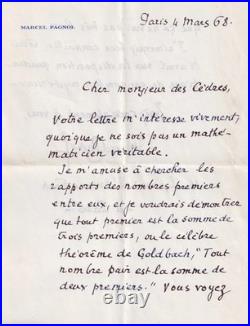 MARCEL PAGNOL
Paris 4 Mars 68.
Cher monsieur des Cèdres,
Votre lettre m'intéresse vivement,
quoique je ne sois pas un mathé-
maticien véritable.
Je m'amuse à chercher les
rapports des nombres premiers
entre eux, et je voudrais démontrer
que tout premier est la somme de
trois premiers, ou le célèbre
théorème de Goldbach, "Tout
nombre pair est la somme de
deux premiers." Vous voyez